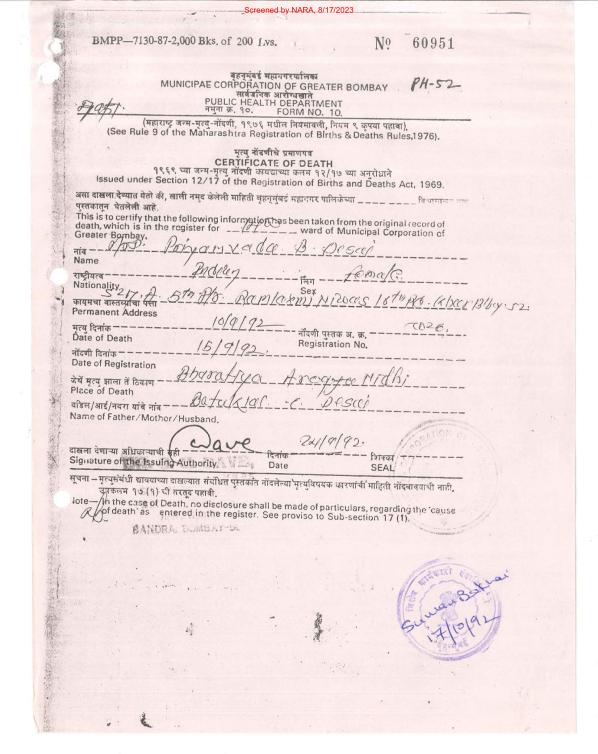 Screened by NARA, 8/17/2023
BMPP—7130-87-2,000 Bks. of 200 Lvs.
No 60951
बृहन्मुंबई महानगरपालिका
MUNICIPAE CORPORATION OF GREATER BOMBAY
PH-52
सार्वजनिक आरोग्यखाते
PUBLIC HEALTH DEPARTMENT
नमुना क्र. १०. FORM NO. 10.
(महाराष्ट्र जन्म-मृत्यु-नोंदणी, १९७६ मधील नियमावली, नियम ९ कृपया पहावा).
(See Rule 9 of the Maharashtra Registration of Births & Deaths Rules,1976).
मृत्यु नोंदणीचे प्रमाणपत्र
CERTIFICATE OF DEATH
१९६९ च्या जन्म-मृत्यु नोंदणी कायद्याच्या कलम १२/१७ च्या अनुरोधाने
Issued under Section 12/17 of the Registration of Births and Deaths Act, 1969.
असा दाखला देण्यात येतो की, खाली नमुद केलेली माहिती बृहन्मुंबई महानगर पालिकेच्या
पुस्तकातून घेतलेली आहे.
This is to certify that the following information has been taken from the original record of
death, which is in the register for ward of Municipal Corporation of
Greater Bombay.
नांव Priyamvada B. Desai
Name
राष्ट्रीयत्व Indian लिंग Female
Nationality Sex
कायमचा वास्तव्याचा पत्ता 5217. A. 5th Ramlaxmi Niwas 16th Rd. Khar Bby. 52.
Permanent Address
मृत्यु दिनांक 10/9/92 नोंदणी पुस्तक अ. क्र.
Date of Death Registration No.
नोंदणी दिनांक 15/9/92.
Date of Registration
जेथें मृत्यु झाला तें ठिकाण Bharatiya Arogya Nidhi
Place of Death
वडिल/आई/नवरा यांचे नांव Batuklal C. Desai
Name of Father/Mother/Husband.
दाखला देणाऱ्या अधिकाऱ्याची सही Dave दिनांक 24/9/92. शिक्का
Signature of the Issuing Authority. Date SEAL
सूचना – मृत्युसंबंधी द्यावयाच्या दाखल्यात संबंधित पुस्तकांत नोंदलेल्या 'मृत्युविषयक कारणांची' माहिती नोंदवावयाची नाही.
कलम १७ (१) ची तरतूद पहावी.
Note—In the case of Death, no disclosure shall be made of particulars, regarding the 'cause
of death' as entered in the register. See proviso to Sub-section 17 (1).
BANDRA, BOMBAY-50
विशेष कार्यकारी
17/10/92
बृहन्मुंबई